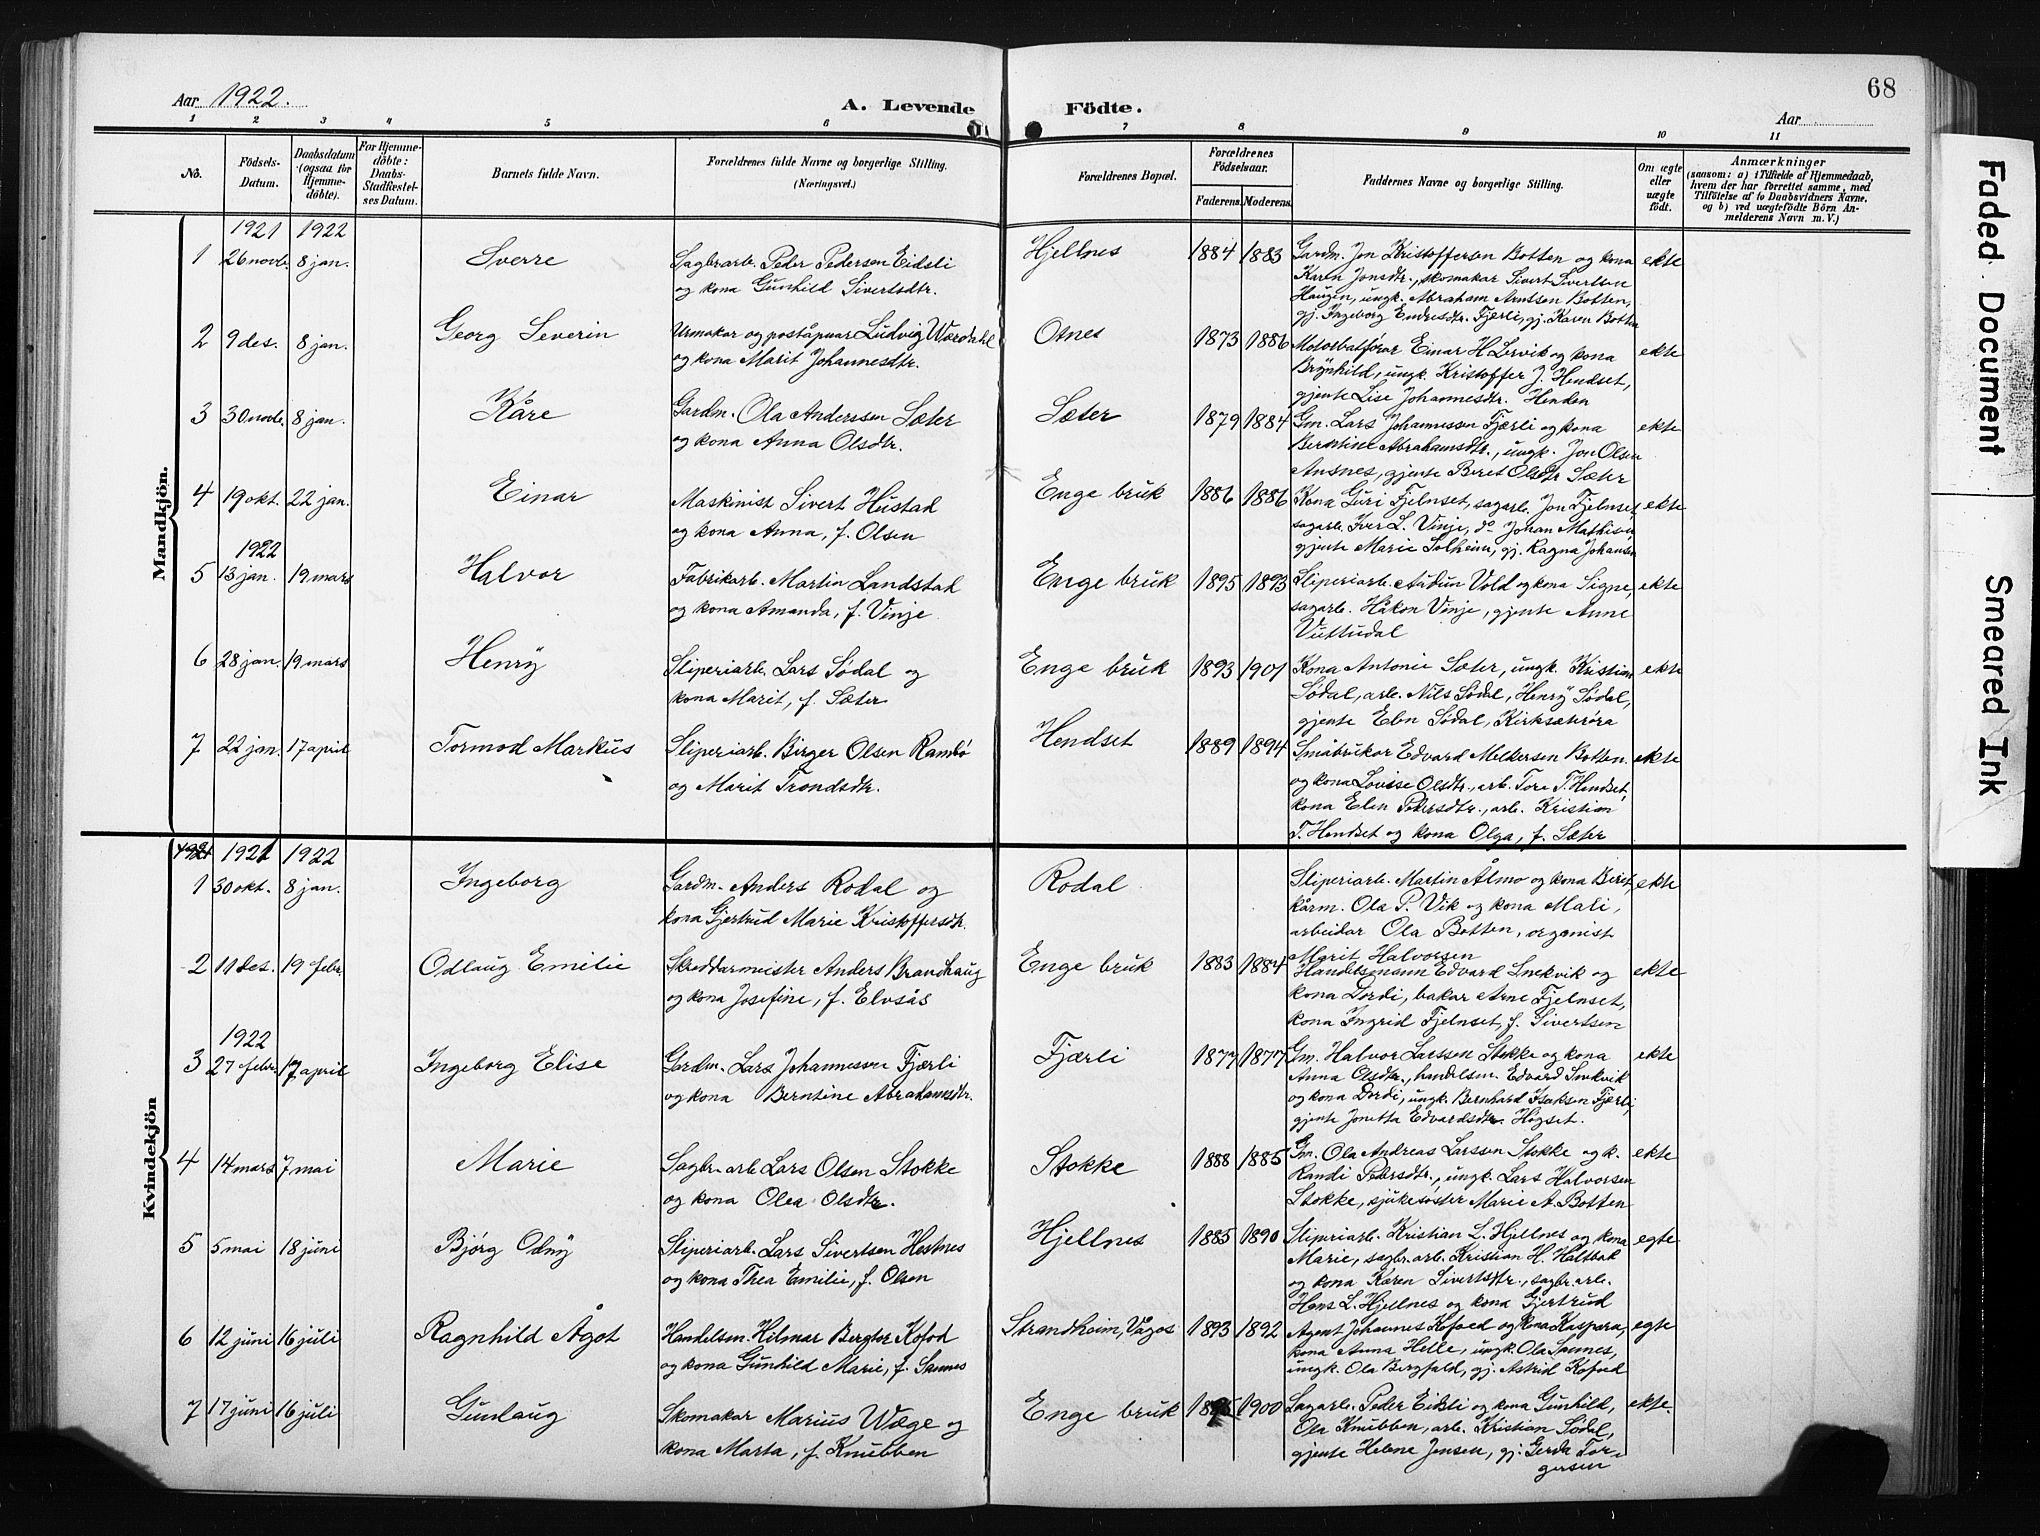 68
Aar 1922.
A. Levende Födte.
Aar
1 2 3 4 5 6 7 8 9 10 11
No.
Födsels-Datum.
Daabsdatum (ogsaa for Hjemme-döbte).
For Hjemme-döbte: Daabs-Stadfestel-ses Datum.
Barnets fulde Navn.
Forældrenes fulde Navne og borgerlige Stilling.
(Næringsvei.)
Forældrenes Bopæl.
Forældrenes Födselsaar.
Faderens. Moderens.
Faddernes Navne og borgerlige Stilling.
Om ægte eller uægte födt.
Anmærkninger
(saasom: a) i Tilfælde af Hjemmedaab,
hvem der har forrettet samme, med
Tilföielse af to Daabsvidners Navne,
og b) ved uægtefödte Börn An-
melderens Navn m. V.)
Mandkjön.
1921 1922
1 26 novb. 8 jan. Sverre Sagbr.arb. Peder Pedersen Eidsli Hjellnes 1884 1883 Gardm. Jon Kristoffersen Botten og kona ekte
og kona Gunhild Sivertsdtr. Karen Jonsdtr., skomakar Sivert Sivertsen
Haugen, ungk. Abraham Arntsen Botten,
gj. Ingeborg Endresdtr. Fjærli, gj. Karen Botten
2 9 des. 8 jan. Georg Severin Urmakar og poståpnar Ludvig Werdahl Otnes 1873 1886 Motorbatförar Einar H. Lervik og kona ekte
og kona Marit Johannesdtr. Brynhild, ungk. Kristoffer J. Hendset,
gjente Lise Johannesdtr. Henden
3 30 novb. 8 jan. Kåre Gardm. Ola Anderssen Sæter Sæter 1879 1884 Gm. Lars Johannessen Fjærli og kona ekte
og kona Anna Olsdtr. Berntine Abrahamsdtr., ungk. Jon Olsen
Ansnes, gjente Beret Olsdtr Sæter
4 19 okt. 22 jan. Einar Maskinist Sivert Hustad Enge bruk 1886 1886 Kona Guri Fjelnset, sagarb. Jon Fjelnset, ekte
og kona Anna, f. Olsen sagarb. Iver L. Vinje, do Johan Mathisen
gjente Marie Solheim, gj. Ragna Johansen
1922
5 13 jan. 19 mars Halvor Fabrikarb. Martin Landstad Enge bruk 1895 1893 Sliperiarb. Audun Vold og kona Signe, ekte
og kona Amanda, f. Vinje sagarb. Håkon Vinje, gjente Anne
Vuttudal
6 28 jan. 19 mars Henry Sliperiarb. Lars Sødal og Enge bruk 1893 1901 Kona Antonie Sæter, ungk. Kristian ekte
kona Marit, f. Sæter Sødal, arb. Nils Sødal, Henry Sødal,
gjente Ebn Sødal, Kirksæterøra
7 22 jan. 17 april Tormod Markus Sliperiarb. Birger Olsen Rambø Hendset 1889 1894 Småbrukar Edvard Melkersen Botten ekte
og Marit Trondsdtr. og kona Lovise Olsdtr., arb. Tore T. Hendset,
kona Elen Pedersdtr., arb. Kristian
T. Hendset og kona Olga, f. Sæter
Kvindekjön
1921 1921 1922
1 30 okt. 8 jan. Ingeborg Gardm. Anders Rodal og Rodal Sliperiarb. Martin Ålmo og kona Beret, ekte
kona Gjertrud Marie Kristoffersdtr. kårm. Ola P. Vik og kona Mali,
arbeidar Ola Botten, organist
Marit Halvorsen
2 11 des. 19 febr. Odlaug Emilie Skreddarmeister Anders Brandhaug Enge bruk 1883 1884 Handelsmann Edvard Snekvik og ekte
og kona Josefine, f. Elvsås kona Dordi, bakar Arne Fjelnset,
kona Ingrid Fjelnset, f. Sivertsen
1922
3 27 febr. 17 april Ingeborg Elise Gardm. Lars Johannessen Fjærli Fjærli 1877 1877 Gm. Halvor Larssen Stokke og kona ekte
og kona Berntine Abrahamsdtr. Anna Olsdtr., handelsm. Edvard Snekvik
og kona Dordi, ungk. Bernhard Isaksen Fjærli,
gjente Jonetta Edvardsdtr. Högset.
4 14 mars 7 mai Marie Sagbr.arb Lars Olsen Stokke Stokke 1888 1885 Gm. Ola Andreas Larssen Stokke og k. ekte
og kona Olea Olsdtr. Randi Pedersdtr., ungk. Lars Halvorsen
Stokke, sjukesöster Marie A. Botten
5 5 mai 18 juni Bjørg Odny Sliperiarb. Lars Sivertsen Hestnes Hjellnes 1885 1890 Sliperiarb. Kristian L. Hjellnes og kona egte
og kona Thea Emilie, f. Olsen Marie, sagbr.arb. Kristian H. Haltbak
og kona Karen Sivertsdtr., sagbr.arb.
Hans L. Hjellnes og kona Gjertrud
6 12 juni 16 juli Ragnhild Ågot Handelsm. Hilmar Bergtor Kofod Strandheim, Vågos 1893 1892 Agent Johannes Kofoed og kona Kaspara, egte
og kona Gunhild Marie, f. Sannes kona Anna Helle, ungk. Ola Sannes,
ungk. Ola Bergfald, gj. Astrid Kofoed
7 17 juni 16 juli Gunlaug Skomakar Marius Wæge og Enge bruk 1900 Sagarb. Peder Eidsli og kona Gunhild, ekte.
kona Marta, f. Knubben Ola Knubben, arb. Kristian Sødal,
gjente Helene Jensen, gj. Gerda Tor-
gersen
Faded Document
Smeared Ink